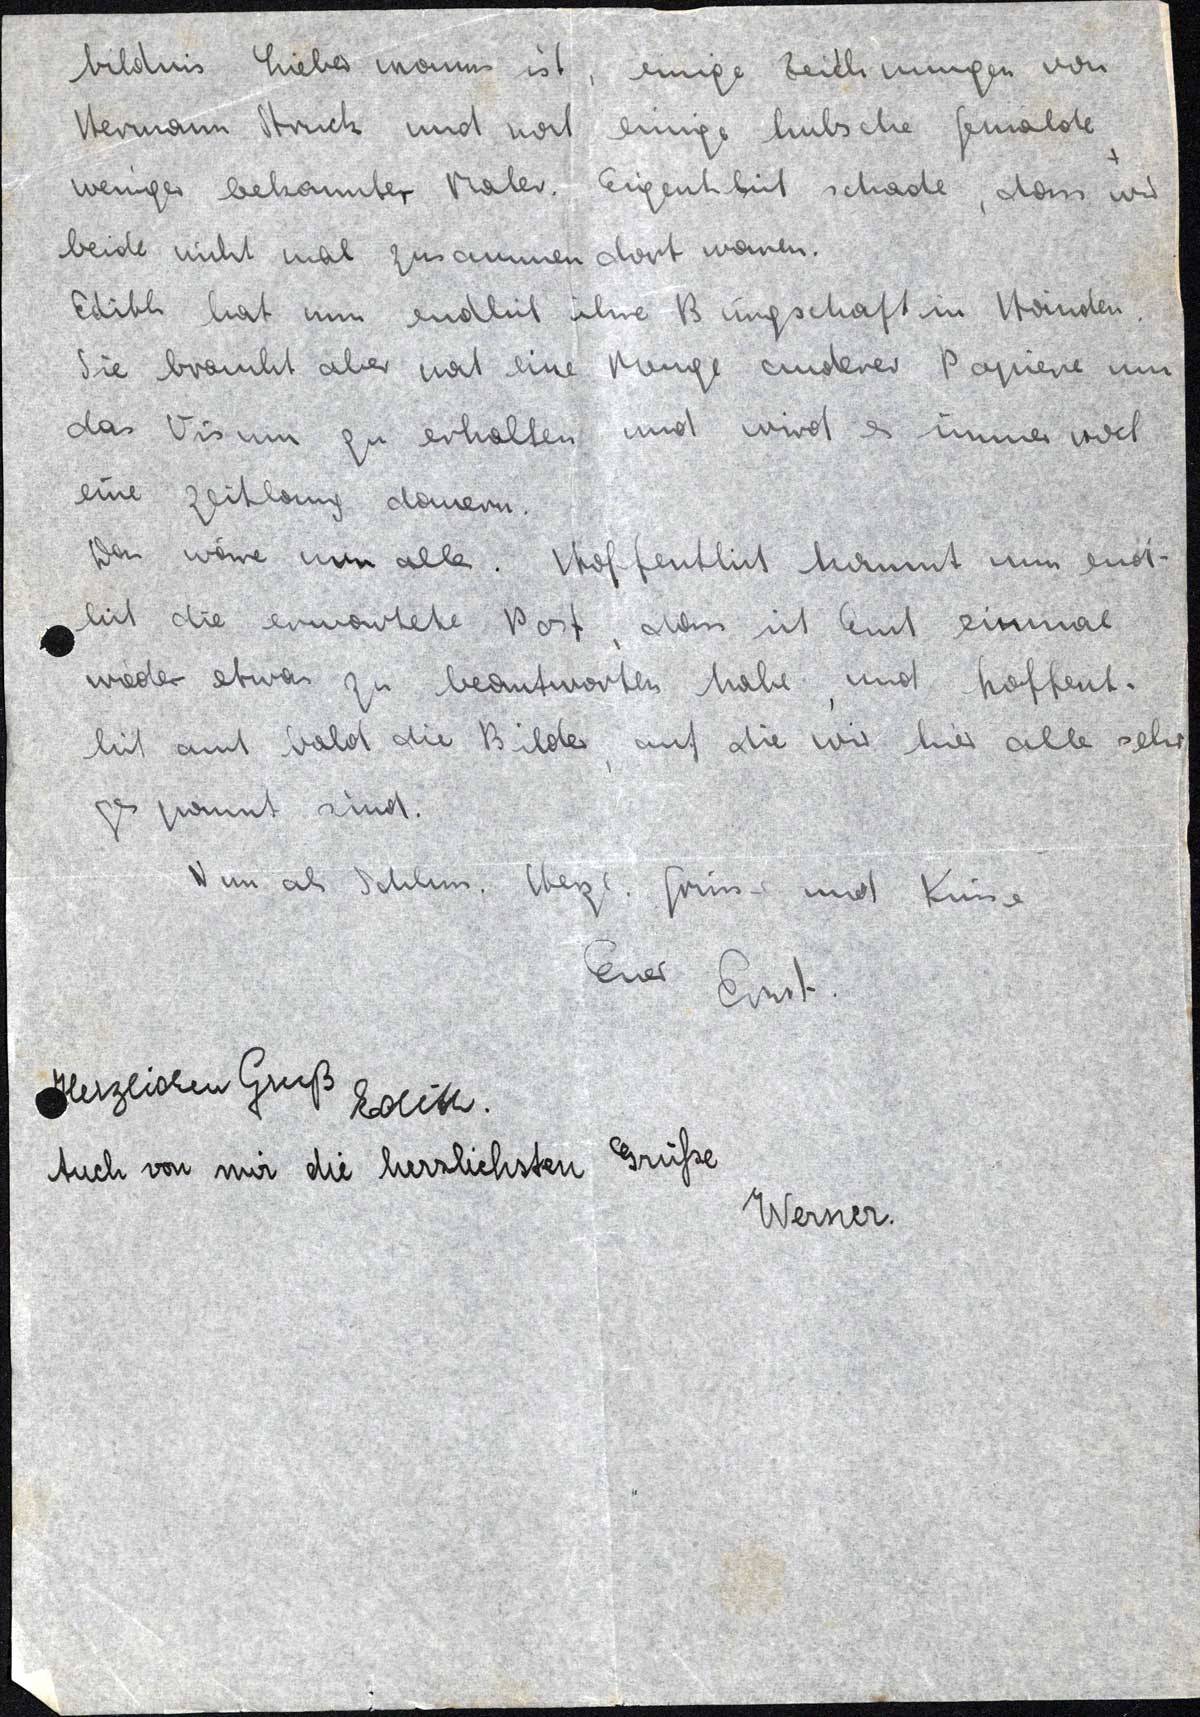 bildnis Liebermanns ist, einige Zeichnungen von
Hermann Struck und noch einige hübsche Gemälde
weniger bekannter Maler. Eigentlich schade, dass wir
beide nicht mal zusammen dort waren.
Edith hat nun endlich ihre Bürgschaft in Händen.
Sie braucht aber noch eine Menge anderer Papiere um
das Visum zu erhalten und wird es immer noch
eine Zeitlang dauern.
Das wäre nun alles. Hoffentlich kommt nun end-
lich die erwartete Post, dass ich auch einmal
wieder etwas zu beantworten habe, und hoffent-
lich auch bald die Bilder, auf die wir hier alle sehr
gespannt sind.
Nun als Schluss. Herzl. Grüsse und Küsse
Euer Ernst.
Herzlichen Gruß Edith.
Auch von mir die herzlichsten Grüße
Werner.